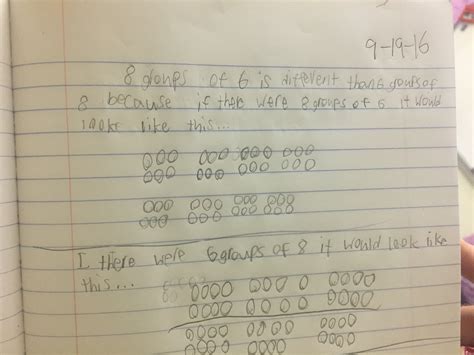 9-19-16
8 groups of 6 is different than 6 goursof
8 because if there were 8 groups of 6 it would
look like this...
I there were 6 groups of 8 it would look like
this...